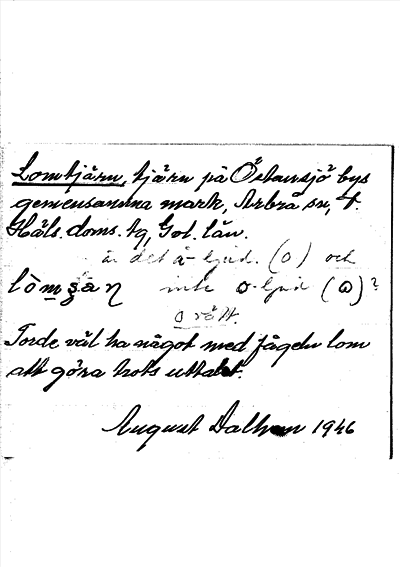 Lomtjärn, tjärn på Östansjö bys
gemensamma mark, Arbrå sn, V.
Häls. doms. tg, Gvl. län.
är det å-ljud (o) och
lòmʂaɳ inte o-ljud (ɷ)?
o rätt.
Torde väl ha något med fågeln lom
att göra trots uttalet.
August Dalhem 1946